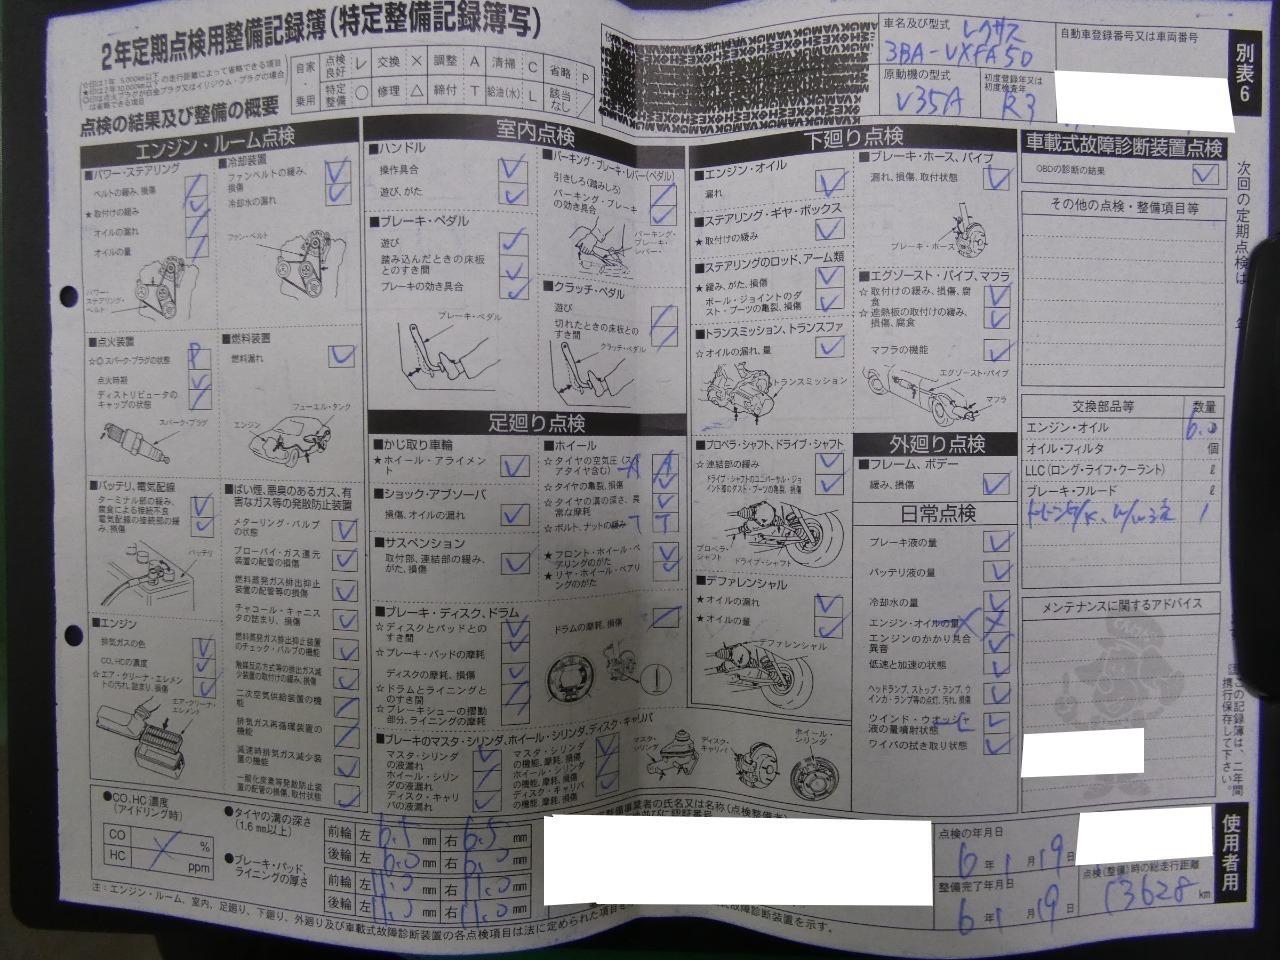 2年定期点検用整備記録簿(特定整備記録簿写)
点検の結果及び整備の概要
自家・乗用
点検良好 レ 交換 × 調整 A 清掃 C 省略 P
特定整備 ○ 修理 △ 締付 T 給油(水) L 該当なし /
車名及び型式 レクサス
3BA-VXFA50
自動車登録番号又は車両番号
原動機の型式
V35A
初度登録年又は初度検査年
R3
別表6
エンジン・ルーム点検
■パワー・ステアリング
ベルトの緩み、損傷
★取付けの緩み
オイルの漏れ
オイルの量
パワー・ステアリング・ベルト
■冷却装置
ファンベルトの緩み、損傷
冷却水の漏れ
ファン・ベルト
■点火装置
☆◎スパーク・プラグの状態 P
点火時期
ディストリビュータのキャップの状態
スパーク・プラグ
■燃料装置
燃料漏れ
フューエル・タンク
エンジン
■バッテリ、電気配線
ターミナル部の緩み、腐食による接続不良
電気配線の接続部の緩み、損傷
バッテリ
■ばい煙、悪臭のあるガス、有害なガス等の発散防止装置
メターリング・バルブの状態
ブローバイ・ガス還元装置の配管の損傷
燃料蒸発ガス排出抑止装置の配管等の損傷
チャコール・キャニスタの詰まり、損傷
燃料蒸発ガス排出抑止装置のチェック・バルブの機能
触媒反応方式等の排出ガス減少装置の取付けの緩み、損傷
二次空気供給装置の機能
排気ガス再循環装置の機能
減速時排気ガス減少装置
一酸化炭素等発散防止装置の配管の損傷、取付状態
■エンジン
排気ガスの色
CO、HCの濃度
☆エア・クリーナ・エレメントの汚れ、詰まり、損傷
エア・クリーナ・エレメント
室内点検
■ハンドル
操作具合
遊び、がた
■ブレーキ・ペダル
遊び
踏み込んだときの床板とのすき間
ブレーキの効き具合
ブレーキ・ペダル
■パーキング・ブレーキ・レバー(ペダル)
引きしろ(踏みしろ)
パーキング・ブレーキの効き具合
パーキング・ブレーキ・レバー
■クラッチ・ペダル
遊び
切れたときの床板とのすき間
クラッチ・ペダル
足廻り点検
■かじ取り車輪
★ホイール・アライメント
■ショック・アブソーバ
損傷、オイルの漏れ
■サスペンション
取付部、連結部の緩み、がた、損傷
■ホイール
☆タイヤの空気圧(スペアタイヤ含む) A
☆タイヤの亀裂、損傷
☆タイヤの溝の深さ、異常な摩耗
☆ボルト、ナットの緩み T
★フロント・ホイール・ベアリングのがた
★リヤ・ホイール・ベアリングのがた
■ブレーキ・ディスク、ドラム
☆ディスクとパッドとのすき間
☆ブレーキ・パッドの摩耗
ディスクの摩耗、損傷
☆ドラムとライニングとのすき間
☆ブレーキシューの摺動部分、ライニングの摩耗
ドラムの摩耗、損傷
■ブレーキのマスタ・シリンダ、ホイール・シリンダ、ディスク・キャリパ
マスタ・シリンダの液漏れ
ホイール・シリンダの液漏れ
ディスク・キャリパの液漏れ
マスタ・シリンダの機能、摩耗、損傷
ホイール・シリンダの機能、摩耗、損傷
ディスク・キャリパの機能、摩耗、損傷
マスタ・シリンダ
ディスク・キャリパ
ホイール・シリンダ
下廻り点検
■エンジン・オイル
漏れ
■ステアリング・ギヤ・ボックス
★取付けの緩み
■ステアリングのロッド、アーム類
★緩み、がた、損傷
ボール・ジョイントのダスト・ブーツの亀裂、損傷
■トランスミッション、トランスファ
☆オイルの漏れ、量
トランスミッション
■プロペラ・シャフト、ドライブ・シャフト
☆連結部の緩み
ドライブ・シャフトのユニバーサル・ジョイント部のダスト・ブーツの亀裂、損傷
プロペラ・シャフト
ドライブ・シャフト
■デファレンシャル
★オイルの漏れ
★オイルの量
デファレンシャル
■ブレーキ・ホース、パイプ
漏れ、損傷、取付状態
ブレーキ・ホース
■エグゾースト・パイプ、マフラ
☆取付けの緩み、損傷、腐食
☆遮熱板の取付けの緩み、損傷、腐食
マフラの機能
エグゾースト・パイプ
マフラ
外廻り点検
■フレーム、ボデー
緩み、損傷
日常点検
ブレーキ液の量
バッテリ液の量
冷却水の量
エンジン・オイルの量 ×
エンジンのかかり具合、異音
低速と加速の状態
ヘッドランプ、ストップ・ランプ、ウインカ・ランプ等の点灯、汚れ、損傷
ウインド・ウオッシャ液の量噴射状態 L
ワイパの拭き取り状態
車載式故障診断装置点検
OBDの診断の結果
その他の点検・整備項目等
交換部品等 数量
エンジン・オイル 6.0
オイル・フィルタ 個
LLC(ロング・ライフ・クーラント) ℓ
ブレーキ・フルード ℓ
1
メンテナンスに関するアドバイス
次回の定期点検は、
この記録簿は、二年間携行保存して下さい。
使用者用
●CO、HC濃度(アイドリング時)
CO %
HC ppm
●タイヤの溝の深さ(1.6mm以上)
前輪 左 6.5 mm 右 6.5 mm
後輪 左 6.0 mm 右 6.0 mm
●ブレーキ・パッド、ライニングの厚さ
前輪 左 11.0 mm 右 11.0 mm
後輪 左 11.0 mm 右 11.0 mm
点検の年月日
6年1月19日
整備完了年月日
6年1月19日
点検(整備)時の総走行距離
13628 km
注:エンジン・ルーム、室内、足廻り、下廻り、外廻り及び車載式故障診断装置の各点検項目は法に定められた項目を
故障診断装置を示す。